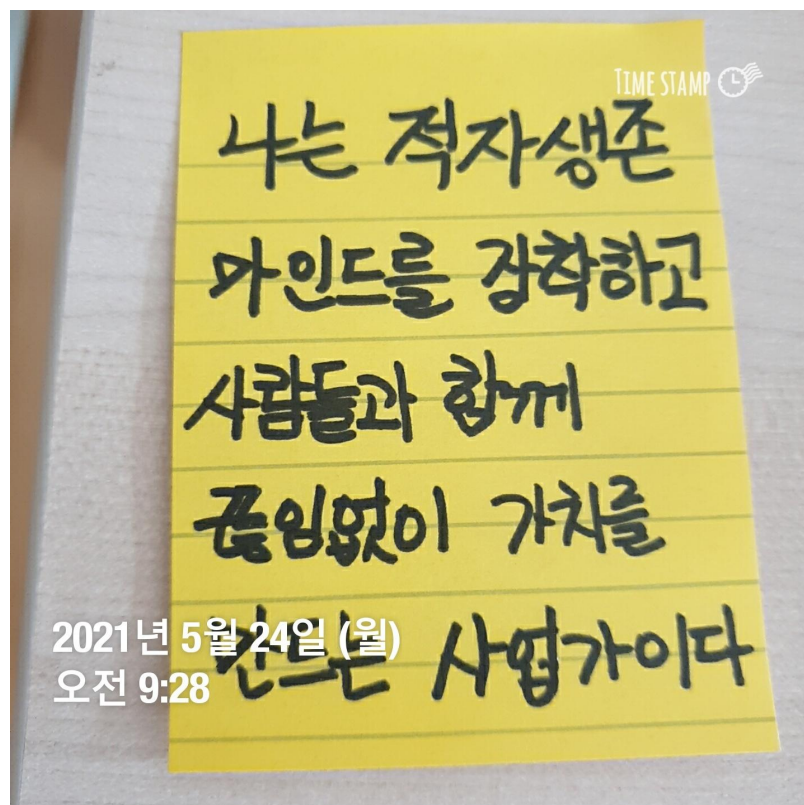 TIME STAMP
나는 적자생존
마인드를 장착하고
사람들과 함께
끊임없이 가치를
만드는 사업가이다
2021년 5월 24일 (월)
오전 9:28